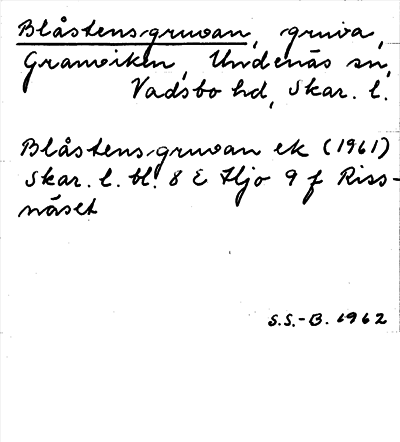 Blåstensgruvan, gruva,
Granviken, Undenäs sn,
Vadsbo hd, Skar. l.
Blåstensgruvan ek (1961)
Skar. l. bl. 8 E Hjo 9 f Riss-
näset
S.S.-B. 1962